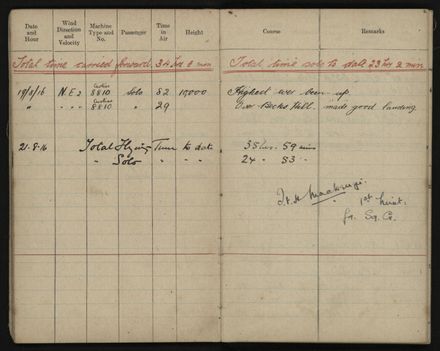 Date and Hour Wind Direction and Velocity Machine Type and No. Passenger Time in Air Height Course Remarks
Total time carried forward 34 hrs 8 min Total time solo to date 23 hrs 2 min
19/8/16 N.E 2 Curtiss 8810 Solo 82 10,000 Highest ever been up.
" " " " Curtiss 8810 " 29 Over Becks Hill. made good landing.
21.8.16 Total Flying Time to date 35 hrs. 59 min
" Solo " " " 24 " 53 "
1st Lieut.
for Sq. Co.